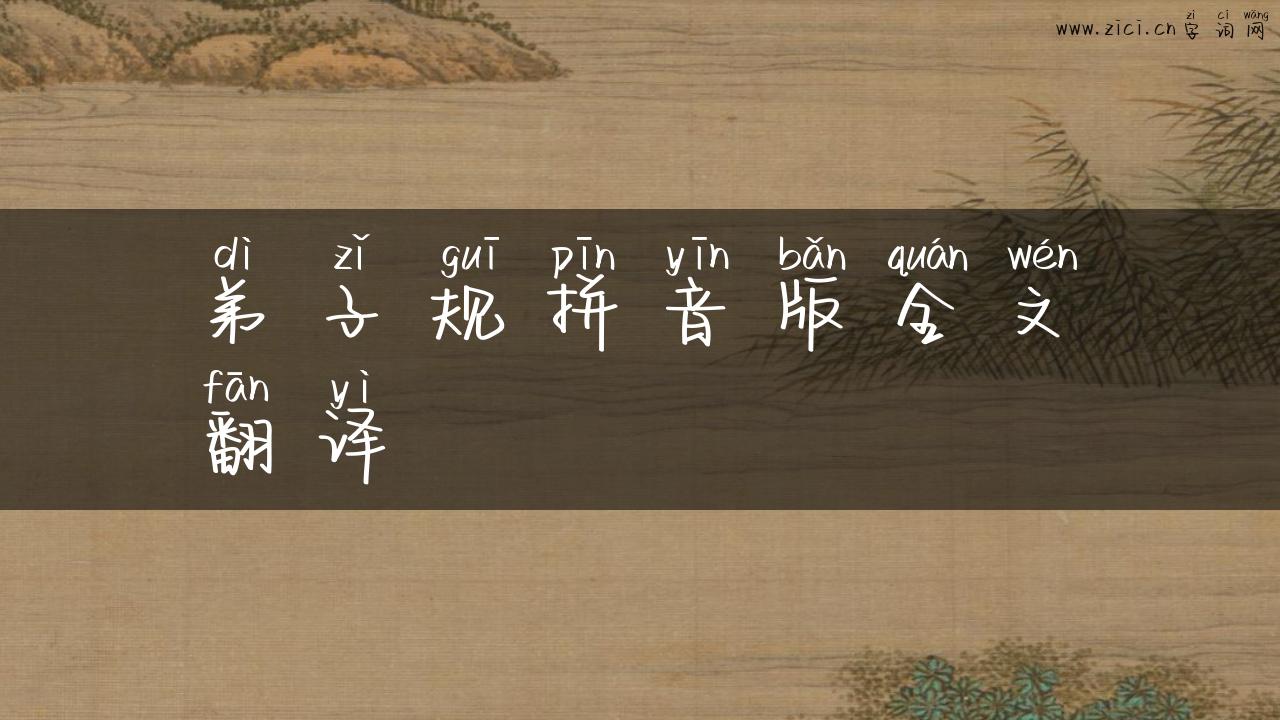 zì cí wǎng
www.zici.cn 字 词 网
dì zǐ guī pīn yīn bǎn quán wén
弟 子 规 拼 音 版 全 文
fān yì
翻 译